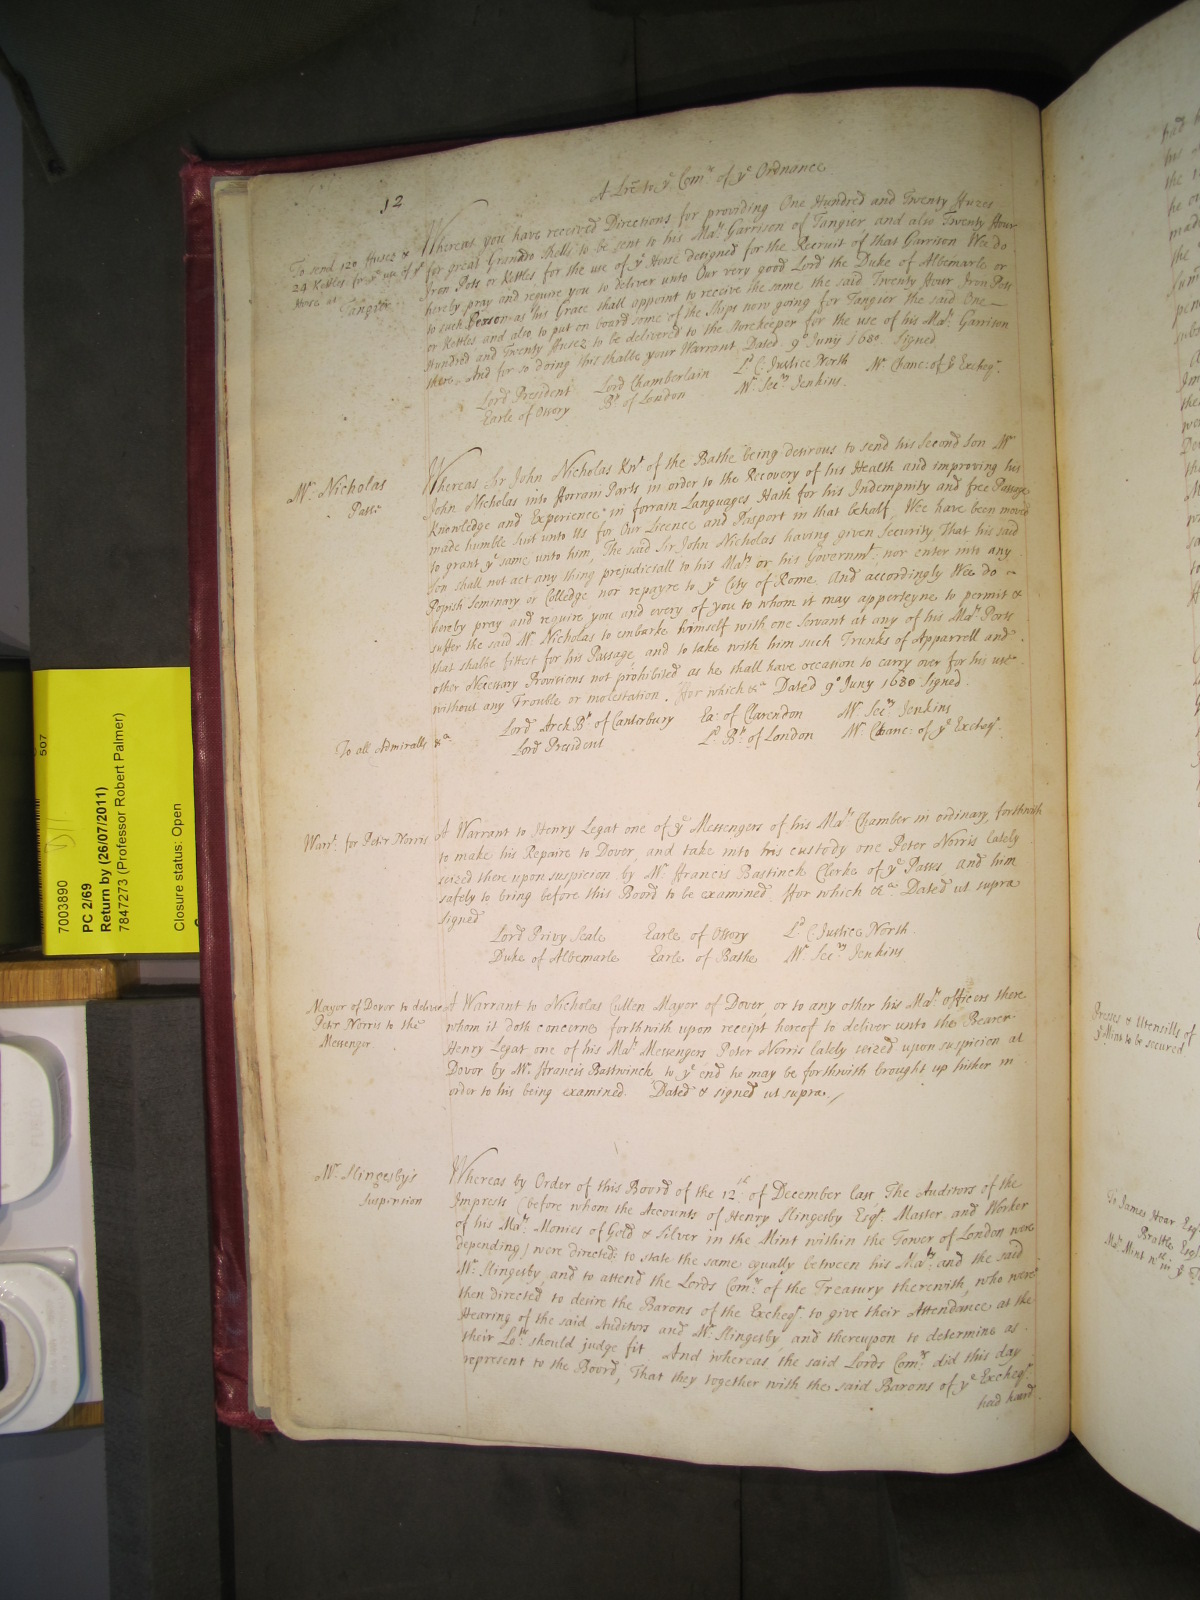 12
A Lre to yᵉ Comʳˢ of yᵉ Ordnance
To send 120 ffuzes &
24 Kettles for yᵉ use of yᵉ
Horse at
Tangier
Whereas you have received Directions for providing One Hundred and Twenty ffuzes
for great Granado shells to be sent to his Maᵗˢ Garrison of Tangier, and also Twenty ffour
Iron Pots or Kettles for the use of yᵉ Horse designed for the Recruit of that Garrison We do
hereby pray and require you to deliver unto Our very good Lord the Duke of Albemarle or
to such Person as his Grace shall appoint to receive the same the said Twenty ffour Iron Pots
or Kettles and also to put on board some of the Ships now going for Tangier the said One
Hundred and Twenty ffuzes to be delivered to the Storekeeper for the use of his Maᵗˢ Garrison
there. And for so doing this shalbe your Warrant Dated 9º Juny 1680. Signed
Lord President Lord Chamberlain Lᵈ C. Justice North Mʳ Chanc: of yᵉ Excheqʳ.
Earle of Ossory Bᵖ of London Mʳ Secʳʸ Jenkins
Mʳ. Nicholas
Passe
Whereas Sir John Nicholas Knᵗ of the Bathe being desirous to send his Second Son Mʳ
John Nicholas into fforrain Parts in order to the Recovery of his Health and improving his
Knowledge and Experience in forrain Languages Hath for his Indempnity and free Passage
made humble suit unto Us for Our Licence and Pasport in that behalf, Wee have been moved
to grant yᵉ same unto him, The said Sir John Nicholas having given Security That his said
Son shall not act any thing prejudiciall to his Maᵗʸ or his Governmᵗ: nor enter into any
Popish Seminary or Colledge nor repayre to yᵉ City of Rome. And accordingly Wee do
hereby pray and require you and every of you to whom it may apperteyne to permit &
suffer the said Mʳ Nicholas to embarke himself with one servant at any of his Maᵗˢ Ports
that shalbe fittest for his Passage, and to take with him such Trunks of Apparrell and
other Necessary Provisions not prohibited as he shall have occasion to carry over for his use
without any Trouble or molestation. ffor which &ᵃ Dated 9º Juny 1680 Signed.
Lord Arch.Bᵖ of Canterbury Ea: of Clarendon Mʳ Secʳʸ Jenkins
To all Admiralls &ᵃ Lord President Lᵈ. Bᵖ of London Mʳ. Chanc: of yᵉ Excheqʳ.
Warrᵗ. for Peter Norris
A Warrant to Henry Legat one of yᵉ Messengers of his Maᵗˢ Chamber in ordinary, forthwith
to make his Repaire to Dover, and take into his custody one Peter Norris lately
seized there upon suspicion by Mʳ ffrancis Bastinck Clerke of yᵉ Passes, and him
safely to bring before this Board to be examined, ffor which &cᵃ Dated ut supra
signed
Lord Privy Seale Earle of Ossory Lᵈ C Justice North.
Duke of Albemarle Earle of Bathe Mʳ Secʳʸ Jenkins
Mayor of Dover to deliver
Peter Norris to the
Messenger.
A Warrant to Nicholas Cullen Mayor of Dover, or to any other his Maᵗˢ officers there
whom it doth concerne forthwith upon receipt hereof to deliver unto the Bearer
Henry Legat one of his Maᵗˢ Messengers Peter Norris lately seized upon suspicion at
Dover by Mʳ. ffrancis Bastwinck to yᵉ end he may be forthwith brought up hither in
order to his being examined. Dated & signed ut supra.
Mʳ. Slingesby's
Suspension
Whereas by Order of this Board of the 12ᵗʰ of December last The Auditors of the
Imprests (before whom the Accounts of Henry Slingesby Esqʳ. Master and Worker
of his Maᵗˢ Monies of Gold & Silver in the Mint within the Tower of London were
depending) were directed to state the same equally between his Maᵗʸ and the said
Mʳ Slingesby, and to attend the Lords Comʳˢ of the Treasury therewith, who were
then directed to desire the Barons of the Excheqʳ. to give their Attendance at the
Hearing of the said Auditors and Mʳ. Slingesby, and thereupon to determine as
their Loᵖˢ should judge fit. And whereas the said Lords Comʳˢ did this day
represent to the Board, That they together with the said Barons of yᵉ Excheqʳ.
had heard
Presses & Utensills of
yᵉ Mint to be secured
Sir James Hoar Esqʳ
Brattle Esqʳ
507
7003890
PC 2/69
Return by (26/07/2011)
7847273 (Professor Robert Palmer)
Closure status: Open